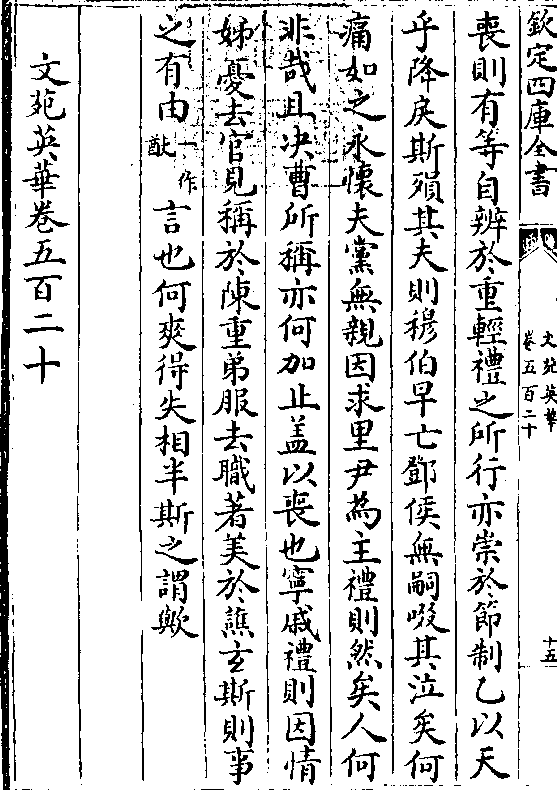 欽定四庫全書
文苑英華
卷五百二十
十五
喪則有等自辨於重輕禮之所行亦崇於節制乙以天
乎降戾斯殞其夫則穆伯早亡鄧侯無嗣啜其泣矣何
痛如之永懷夫黨無親因求里尹為主禮則然矣人何
非哉且决曹所稱亦何加止盖以喪也寧戚禮則因情
姊憂去官見稱於陳重弟服去職著美於譙玄斯則事
之有由一作猷言也何爽得失相半斯之謂歟
文苑英華卷五百二十